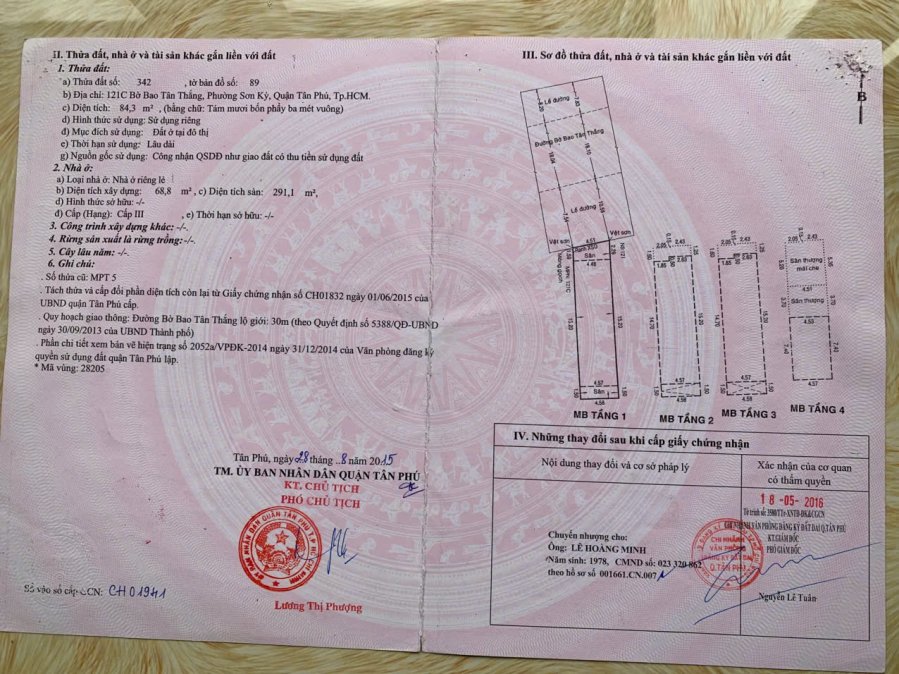 II. Thửa đất, nhà ở và tài sản khác gắn liền với đất
1. Thửa đất:
a) Thửa đất số: 342 , tờ bản đồ số: 89
b) Địa chỉ: 121C Bờ Bao Tân Thắng, Phường Sơn Kỳ, Quận Tân Phú, Tp.HCM.
c) Diện tích: 84,3 m² , (bằng chữ: Tám mươi bốn phẩy ba mét vuông)
d) Hình thức sử dụng: Sử dụng riêng
đ) Mục đích sử dụng: Đất ở tại đô thị
e) Thời hạn sử dụng: Lâu dài
g) Nguồn gốc sử dụng: Công nhận QSDĐ như giao đất có thu tiền sử dụng đất
2. Nhà ở:
a) Loại nhà ở: Nhà ở riêng lẻ
b) Diện tích xây dựng: 68,8 m² , c) Diện tích sàn: 291,1 m²,
d) Hình thức sở hữu: -/-
đ) Cấp (Hạng): Cấp III , e) Thời hạn sở hữu: -/-
3. Công trình xây dựng khác: -/-.
4. Rừng sản xuất là rừng trồng: -/-.
5. Cây lâu năm: -/-.
6. Ghi chú:
Số thửa cũ: MPT 5
. Tách thửa và cấp đổi phần diện tích còn lại từ Giấy chứng nhận số CH01832 ngày 01/06/2015 của
UBND quận Tân Phú cấp.
. Quy hoạch giao thông: Đường Bờ Bao Tân Thắng lộ giới: 30m (theo Quyết định số 5388/QĐ-UBND
ngày 30/09/2013 của UBND Thành phố)
. Phần chi tiết xem bản vẽ hiện trạng số 2052a/VPĐK-2014 ngày 31/12/2014 của Văn phòng đăng ký
quyền sử dụng đất quận Tân Phú lập.
* Mã vùng: 28205
Tân Phú, ngày 28 tháng 8 năm 2015
TM. ỦY BAN NHÂN DÂN QUẬN TÂN PHÚ
KT. CHỦ TỊCH
PHÓ CHỦ TỊCH
Lương Thị Phượng
Số vào sổ cấp GCN: CH01941
III. Sơ đồ thửa đất, nhà ở và tài sản khác gắn liền với đất
B
Lề đường
Đường Bờ Bao Tân Thắng
Lề đường
Vệt sơn
Vệt sơn
4.53
Sân
4.48
15.20
15.20
4.57
Sân
4.58
MB TẦNG 1
2.05 2.43
1.85 2.60
14.70
4.57
4.58
MB TẦNG 2
2.05 2.43
1.85 2.60
14.70
4.57
4.58
MB TẦNG 3
2.05 2.43
Sân thượng
mái che
4.51
Sân thượng
4.53
7.40
7.40
4.58
MB TẦNG 4
IV. Những thay đổi sau khi cấp giấy chứng nhận
Nội dung thay đổi và cơ sở pháp lý
Xác nhận của cơ quan
có thẩm quyền
Chuyển nhượng cho:
Ông: LÊ HOÀNG MINH
Năm sinh: 1978, CMND số: 023 320 862
theo hồ sơ số 001661.CN.007
18-05-2016
Tờ trình số: 3590/TTr-XNTĐ-ĐK&CGCN
CHI NHÁNH VĂN PHÒNG ĐĂNG KÝ ĐẤT ĐAI Q.TÂN PHÚ
KT.GIÁM ĐỐC
PHÓ GIÁM ĐỐC
CHI NHÁNH
VĂN PHÒNG
ĐĂNG KÝ ĐẤT ĐAI
Q.TÂN PHÚ
Nguyễn Lê Tuân